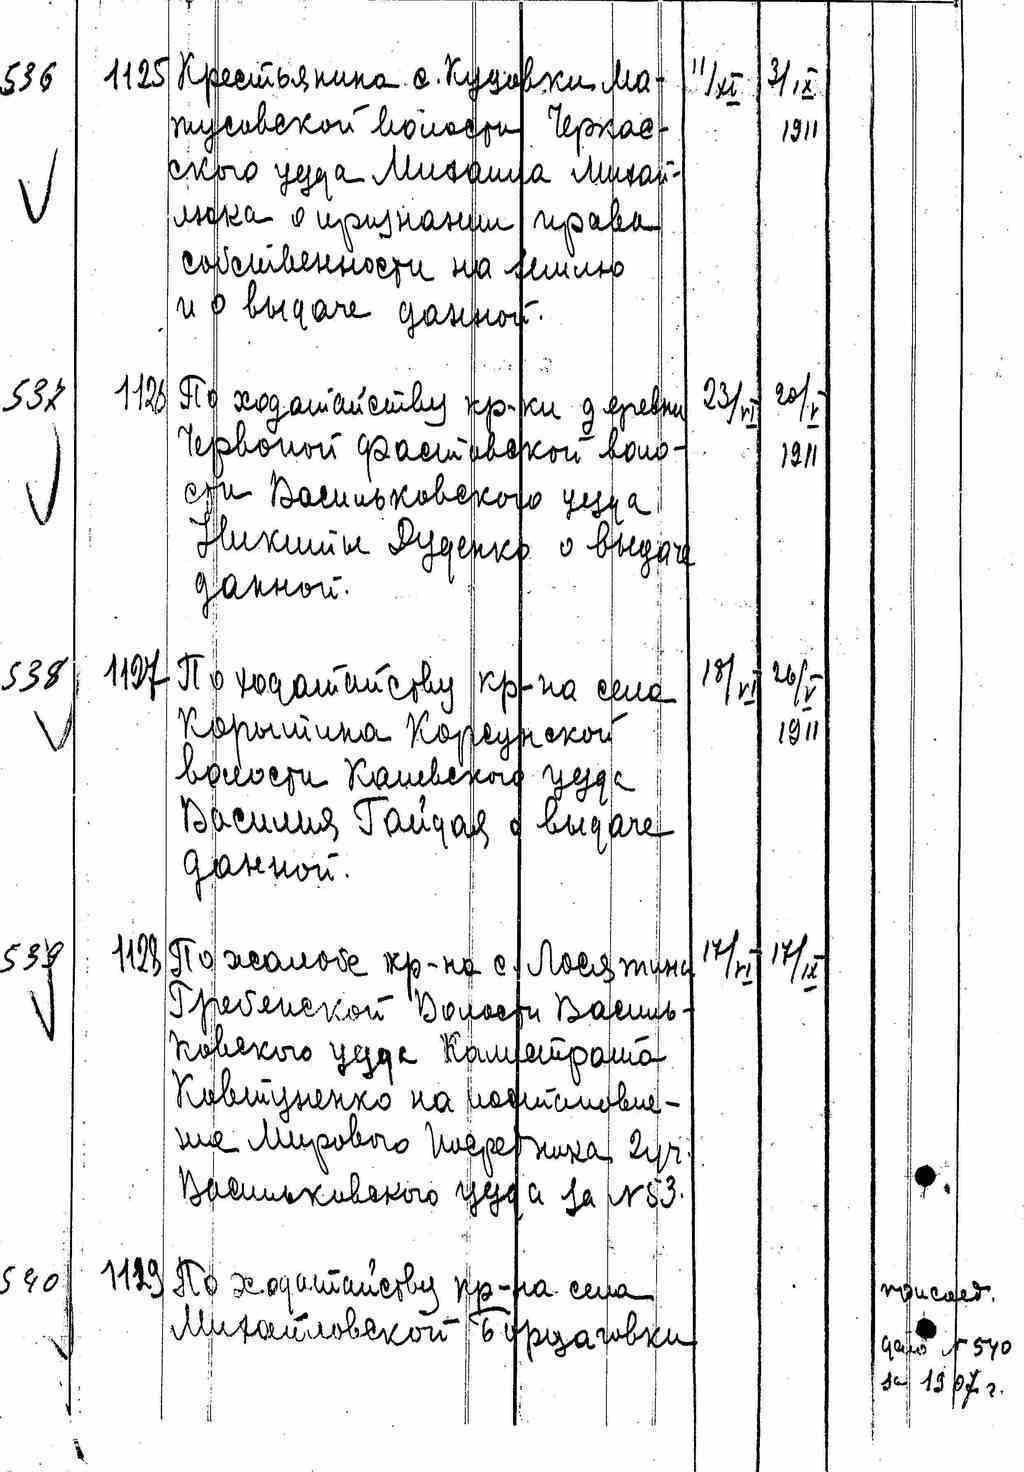 536 1125 Крестьянина с. Худовки Ма- 11/XI 3/IX
жусовской волости Черкас- 1911
ского уезда Михаила Михай-
люка о признании права
собственности на землю
и о выдаче данной.
537 1126 По ходатайству кр-ки деревни 23/VI 20/V
Червоной Фастовской воло- 1911
сти Васильковского уезда
Никиты Дуденко о выдаче
данной.
538 1127 По ходатайству кр-на села 18/VI 26/V
Корытина Корсунской 1911
волости Каневского уезда
Василия Гайдая о выдаче
данной.
539 1128 По жалобе кр-на с. Лосятина 17/VI 17/IX
Гребенской Волости Василь-
ковского уезда Калистрата
Ковтуненко на постановле-
ние Мирового Посредника 2 уч.
Васильковского уезда за N 53.
540 1129 По ходатайству кр-на села
Михайловской Борщаговки
присоед.
дело N 540
за 1907 г.